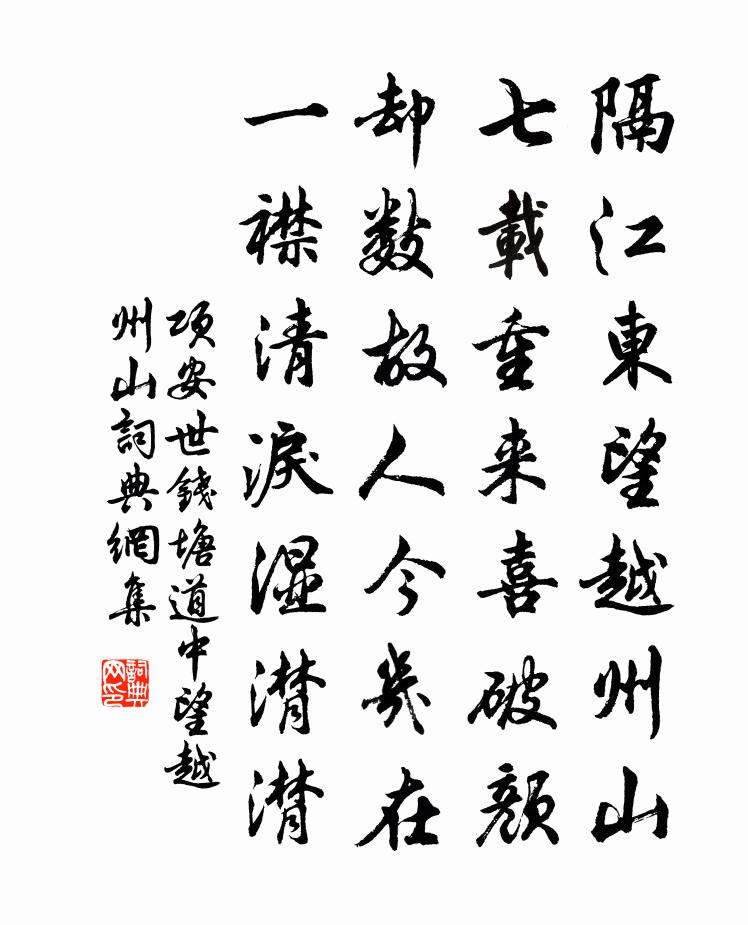 隔江東望越州山
七載重来喜破顔
却數故人今幾在
一襟清淚濕潸潸
項安世錢塘道中望越
州山詞典網集
詞典
网印